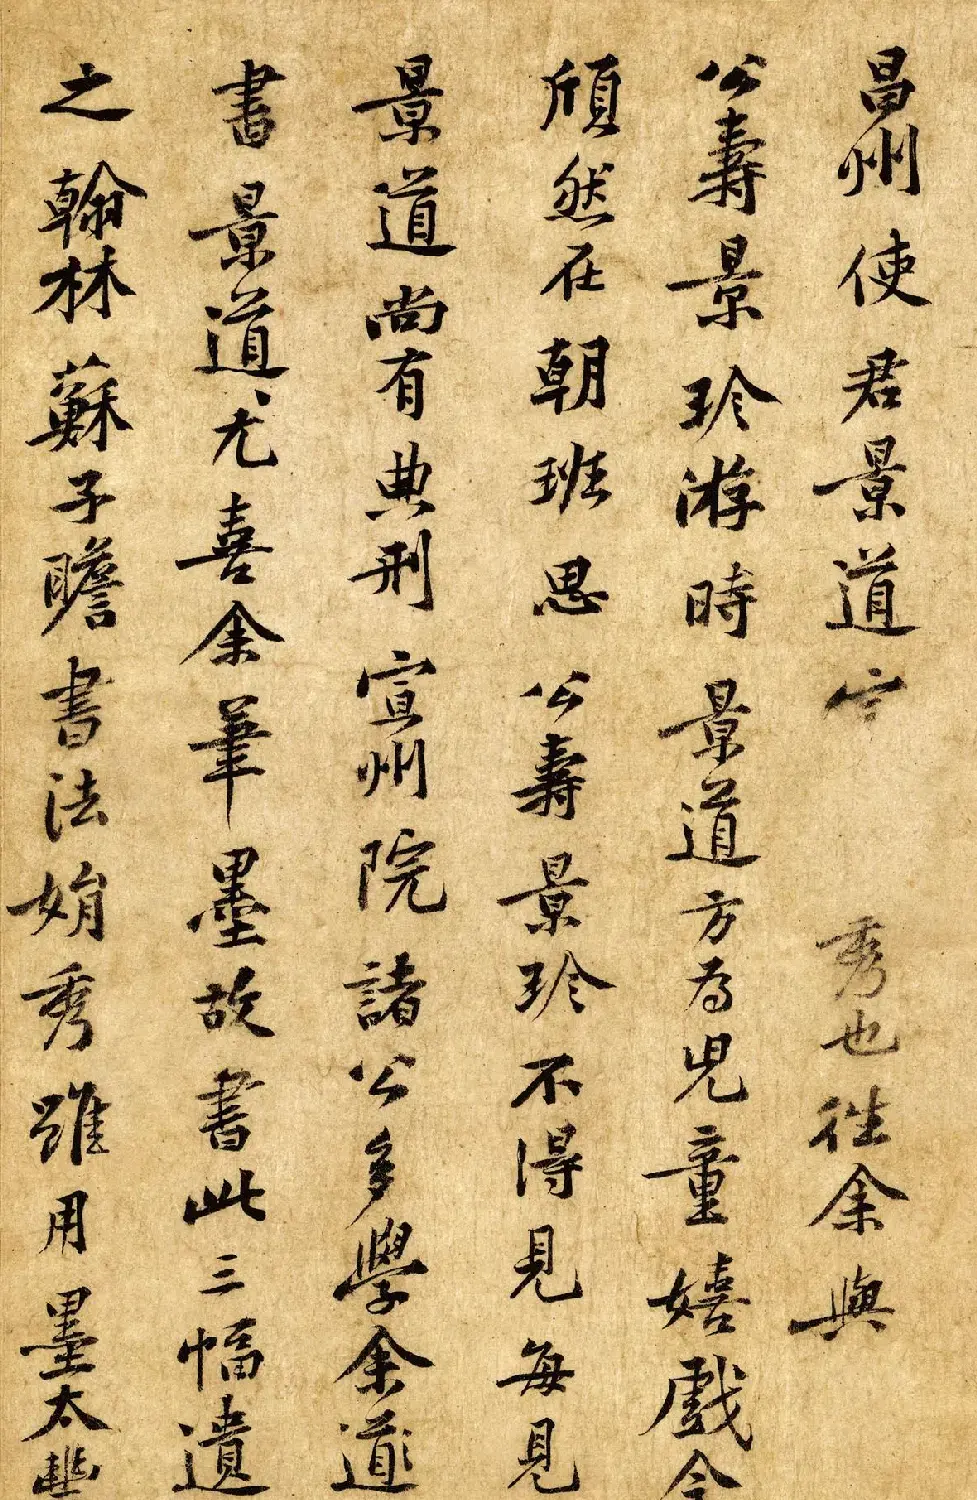 昌州使君景道秀也往余與
公壽景珍游時景道方為兒童嬉戲今
頎然在朝班思公壽景珍不得見每見
景道尚有典刑宣州院諸公多學余道
書景道尤喜余筆墨故書此三幅遺
之翰林蘇子瞻書法娟秀雖用墨太